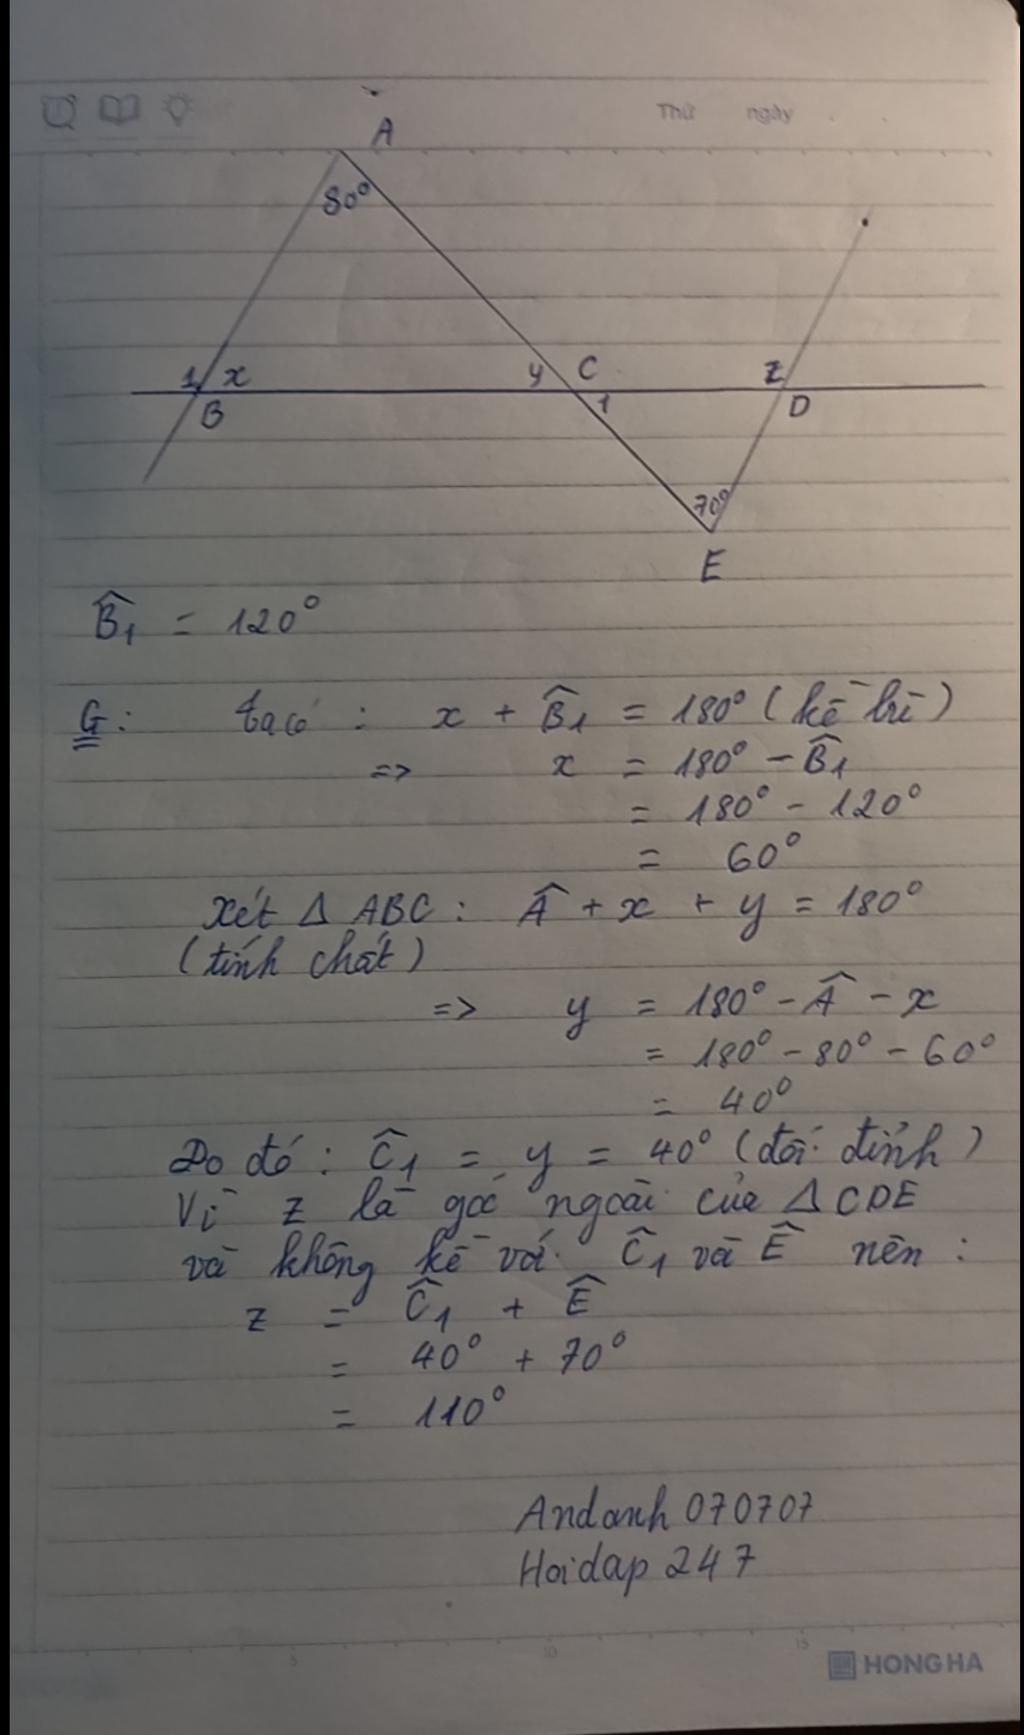 Thứ ngày
A
80°
1 x y C z
B 1 D
70°
E
B̂₁ = 120°
G: ta có : x + B̂₁ = 180° (kề bù)
=> x = 180° - B̂₁
= 180° - 120°
= 60°
Xét Δ ABC : Â + x + y = 180°
(tính chất)
=> y = 180° - Â - x
= 180° - 80° - 60°
= 40°
Do đó : Ĉ₁ = y = 40° (đối đỉnh)
Vì z là góc ngoài của Δ CDE
và không kề với Ĉ₁ và Ê nên :
z = Ĉ₁ + Ê
= 40° + 70°
= 110°
Andanh 070707
Hoidap 247
5 10 15
HONG HA